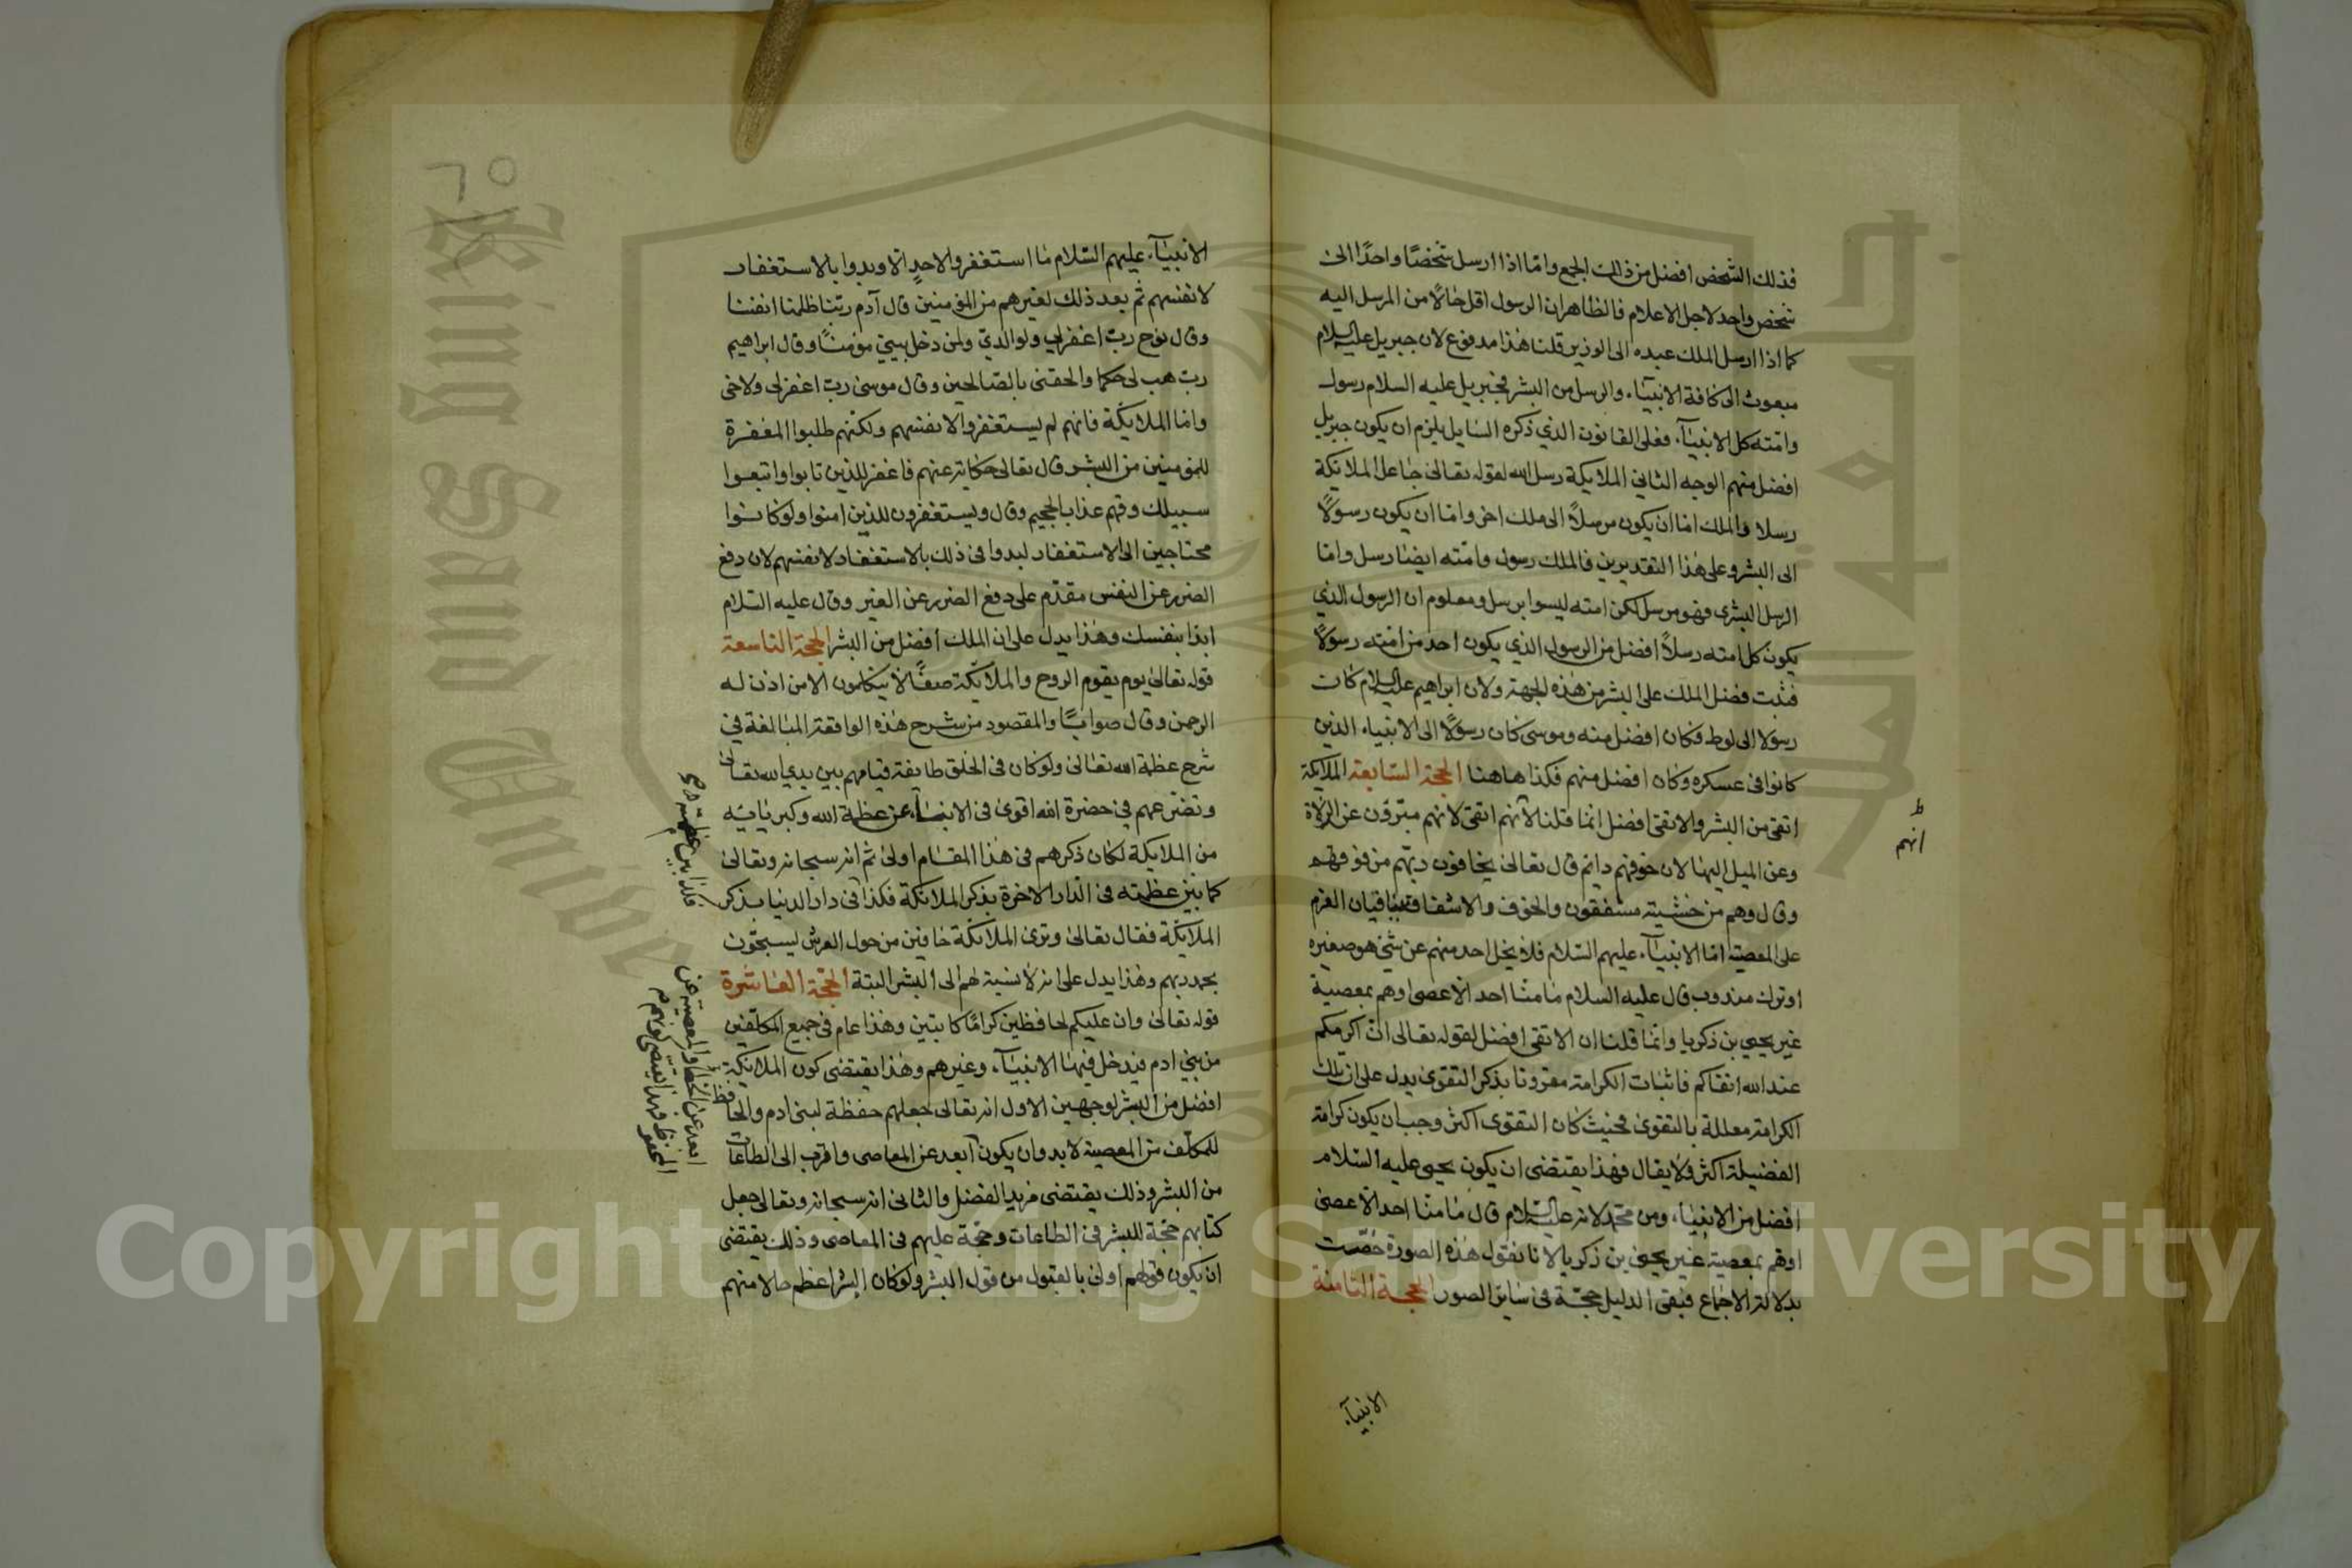 فذلك الشخص افضل من ذلك الجمع واما اذا ارسل شخصًا واحدًا الى
شخص واحد لاجل الاعلام فالظاهر ان الرسول اقل حالًا من المرسل اليه
كما اذا ارسل الملك عبده الى الوزير قلنا هذا مدفوع لان جبريل عليه السلام
مبعوث الى كافة الانبيآء والرسل من البشر فجبريل عليه السلام رسول
وامّته كل الانبيآء فعلى القانون الذي ذكره السايل يلزم ان يكون جبريل
افضل منهم الوجه الثاني الملايكة رسل الله لقوله تعالى جاعل الملايكة
رسلا والملك اما ان يكون مرسلًا الى ملك اخر واما ان يكون رسولًا
الى البشر وعلى هذا التقديرين فالملك رسول وامّته ايضا رسل واما
الرسل البشرى فهو مرسل لكن امته ليسوا برسل ومعلوم ان الرسول الذي
يكون كل امته رسلًا افضل من الرسول الذي يكون احد من امّته رسولًا
فثبت فضل الملك على البشر من هذه الجهة ولان ابراهيم عليه السلام كان
رسولا الى لوط فكان افضل منه وموسى كان رسولًا الى الانبياء الذين
كانوا في عسكره وكان افضل منهم فكذا هاهنا الحجة السابعة الملايكة
اتقى من البشر والاتقى افضل انما قلنا لانهم اتقى لانهم مبرّؤن عن الزلاة
وعن الميل اليها لان خوفهم دائم قال تعالى يخافون ربّهم من فوقهم
وقال وهم من خشيته مشفقون والخوف والاشفاق ينافيان العزم
على المعصية امّا الانبيآء عليهم السّلام فلا يخل احد منهم عن شئ هو صغيره
او ترك مندوب قال عليه السلام ما منّا احد الا عصى او هم بمعصية
غير يحيى بن زكريا وانما قلنا ان الاتقى افضل لقوله تعالى انّ اكرمكم
عند الله اتقاكم فاثبات الكرامة مقرونا بذكر التقوى يدل على ان تلك
الكرامة معللة بالتقوى فحيث كان التقوى اكثر وجب ان يكون كرامة
الفضيلة اكثر ولا يقال فهذا يقتضى ان يكون يحيى عليه السّلام
افضل من الانبياء ومن محمّد لانه عليه السّلام قال ما منّا احد الا عصى
او هم بمعصية غير يحيى بن زكريا لانا نقول هذه الصورة خصّت
بدلالة الاجماع فبقى الدليل حجّة فى سائر الصور الحجة الثامنة
الانبيآء
انهم
الانبيآء عليهم السّلام ما استغفروا لاحدٍ الا وبدوا بالاستغفار
لانفسهم ثم بعد ذلك لغيرهم من المؤمنين قال آدم ربّنا ظلمنا انفسنا
وقال نوح ربّ اغفر لي ولوالديّ ولمن دخل بيتي مؤمنًا وقال ابراهيم
ربّ هب لي حكما والحقنى بالصّالحين وقال موسى ربّ اغفر لى ولاخى
وامّا الملايكة فانهم لم يستغفروا لانفسهم ولكنّهم طلبوا المغفرة
للمؤمنين من البشر قال تعالى حكاية عنهم فاغفر للذين تابوا واتبعوا
سبيلك وقهم عذاب الجحيم وقال ويستغفرون للذين امنوا ولو كانوا
محتاجين الى الاستغفار لبدوا فى ذلك بالاستغفار لانفسهم لان دفع
الضرر عن النفس مقدّم على دفع الضرر عن الغير وقال عليه السّلام
ابدا بنفسك وهذا يدل على ان الملك افضل من البشر الحجة التاسعة
قوله تعالى يوم يقوم الروح والملائكة صفًّا لا يتكلمون الا من اذن له
الرحمن وقال صوابًا والمقصود من شرح هذه الواقعة المبالغة في
شرح عظمة الله تعالى ولو كان فى الخلق طايفة قيامهم بين يدي الله تعالى
وتضرعهم في حضرة الله اقوى فى الانبياء عن عظمة الله وكبريايه
من الملايكة لكان ذكرهم فى هذا المقام اولى ثم انه سبحانه وتعالى
كما بيّن عظمته فى الدّار الاخرة بذكر الملائكة فكذا فى دار الدنيا بذكر
الملائكة فقال تعالى وترى الملائكة حافين من حول العرش يسبحّون
بحمد ربهم وهذا يدل على انه لا نسبة لهم الى البشر البتة الحجّة العاشرة
قوله تعالى وان عليكم لحافظين كرامًا كاتبين وهذا عام فى جميع المكلّفين
من بني ادم فيدخل فيها الانبيآء وغيرهم وهذا يقتضى كون الملائكة
افضل من البشر لوجهين الاول انه تعالى جعلهم حفظة لبنى ادم والحافظ
للمكلّف من المعصية لا بد وان يكون ابعد عن المعاصى واقرب الى الطاعات
من البشر وذلك يقتضى مزيد الفضل والثانى انه سبحانه وتعالى جعل
كتابهم حجّة للبشر فى الطاعات وحجّة عليهم فى المعاصى وذلك يقتضى
ان يكون قولهم اولى بالقبول من قول البشر ولو كان البشر اعظم حالا منهم
ابعد عن الخطأ والمعصية عن
المحفوظ فهذا يقتضى كونهم
٦٥
جامعة الملك سعود
King Saud University
1957
Copyright © King Saud University